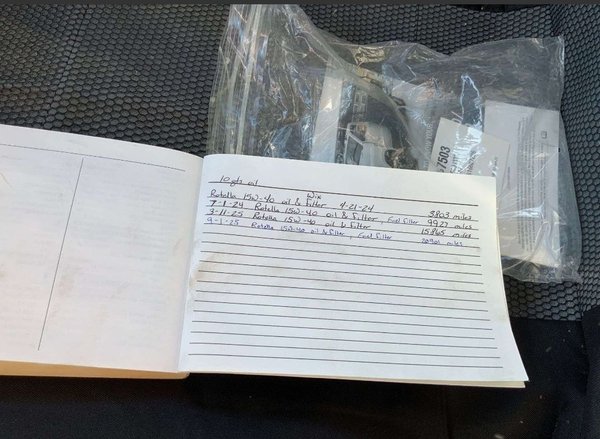 10 qts oil
Wix
Rotella 15w-40 oil & filter 4-21-24 3803 miles
7-1-24 Rotella 15w-40 oil & filter, Fuel filter 9927 miles
3-11-25 Rotella 15w-40 oil & filter 15865 miles
9-1-25 Rotella 15w-40 oil & filter, Fuel filter miles
7503